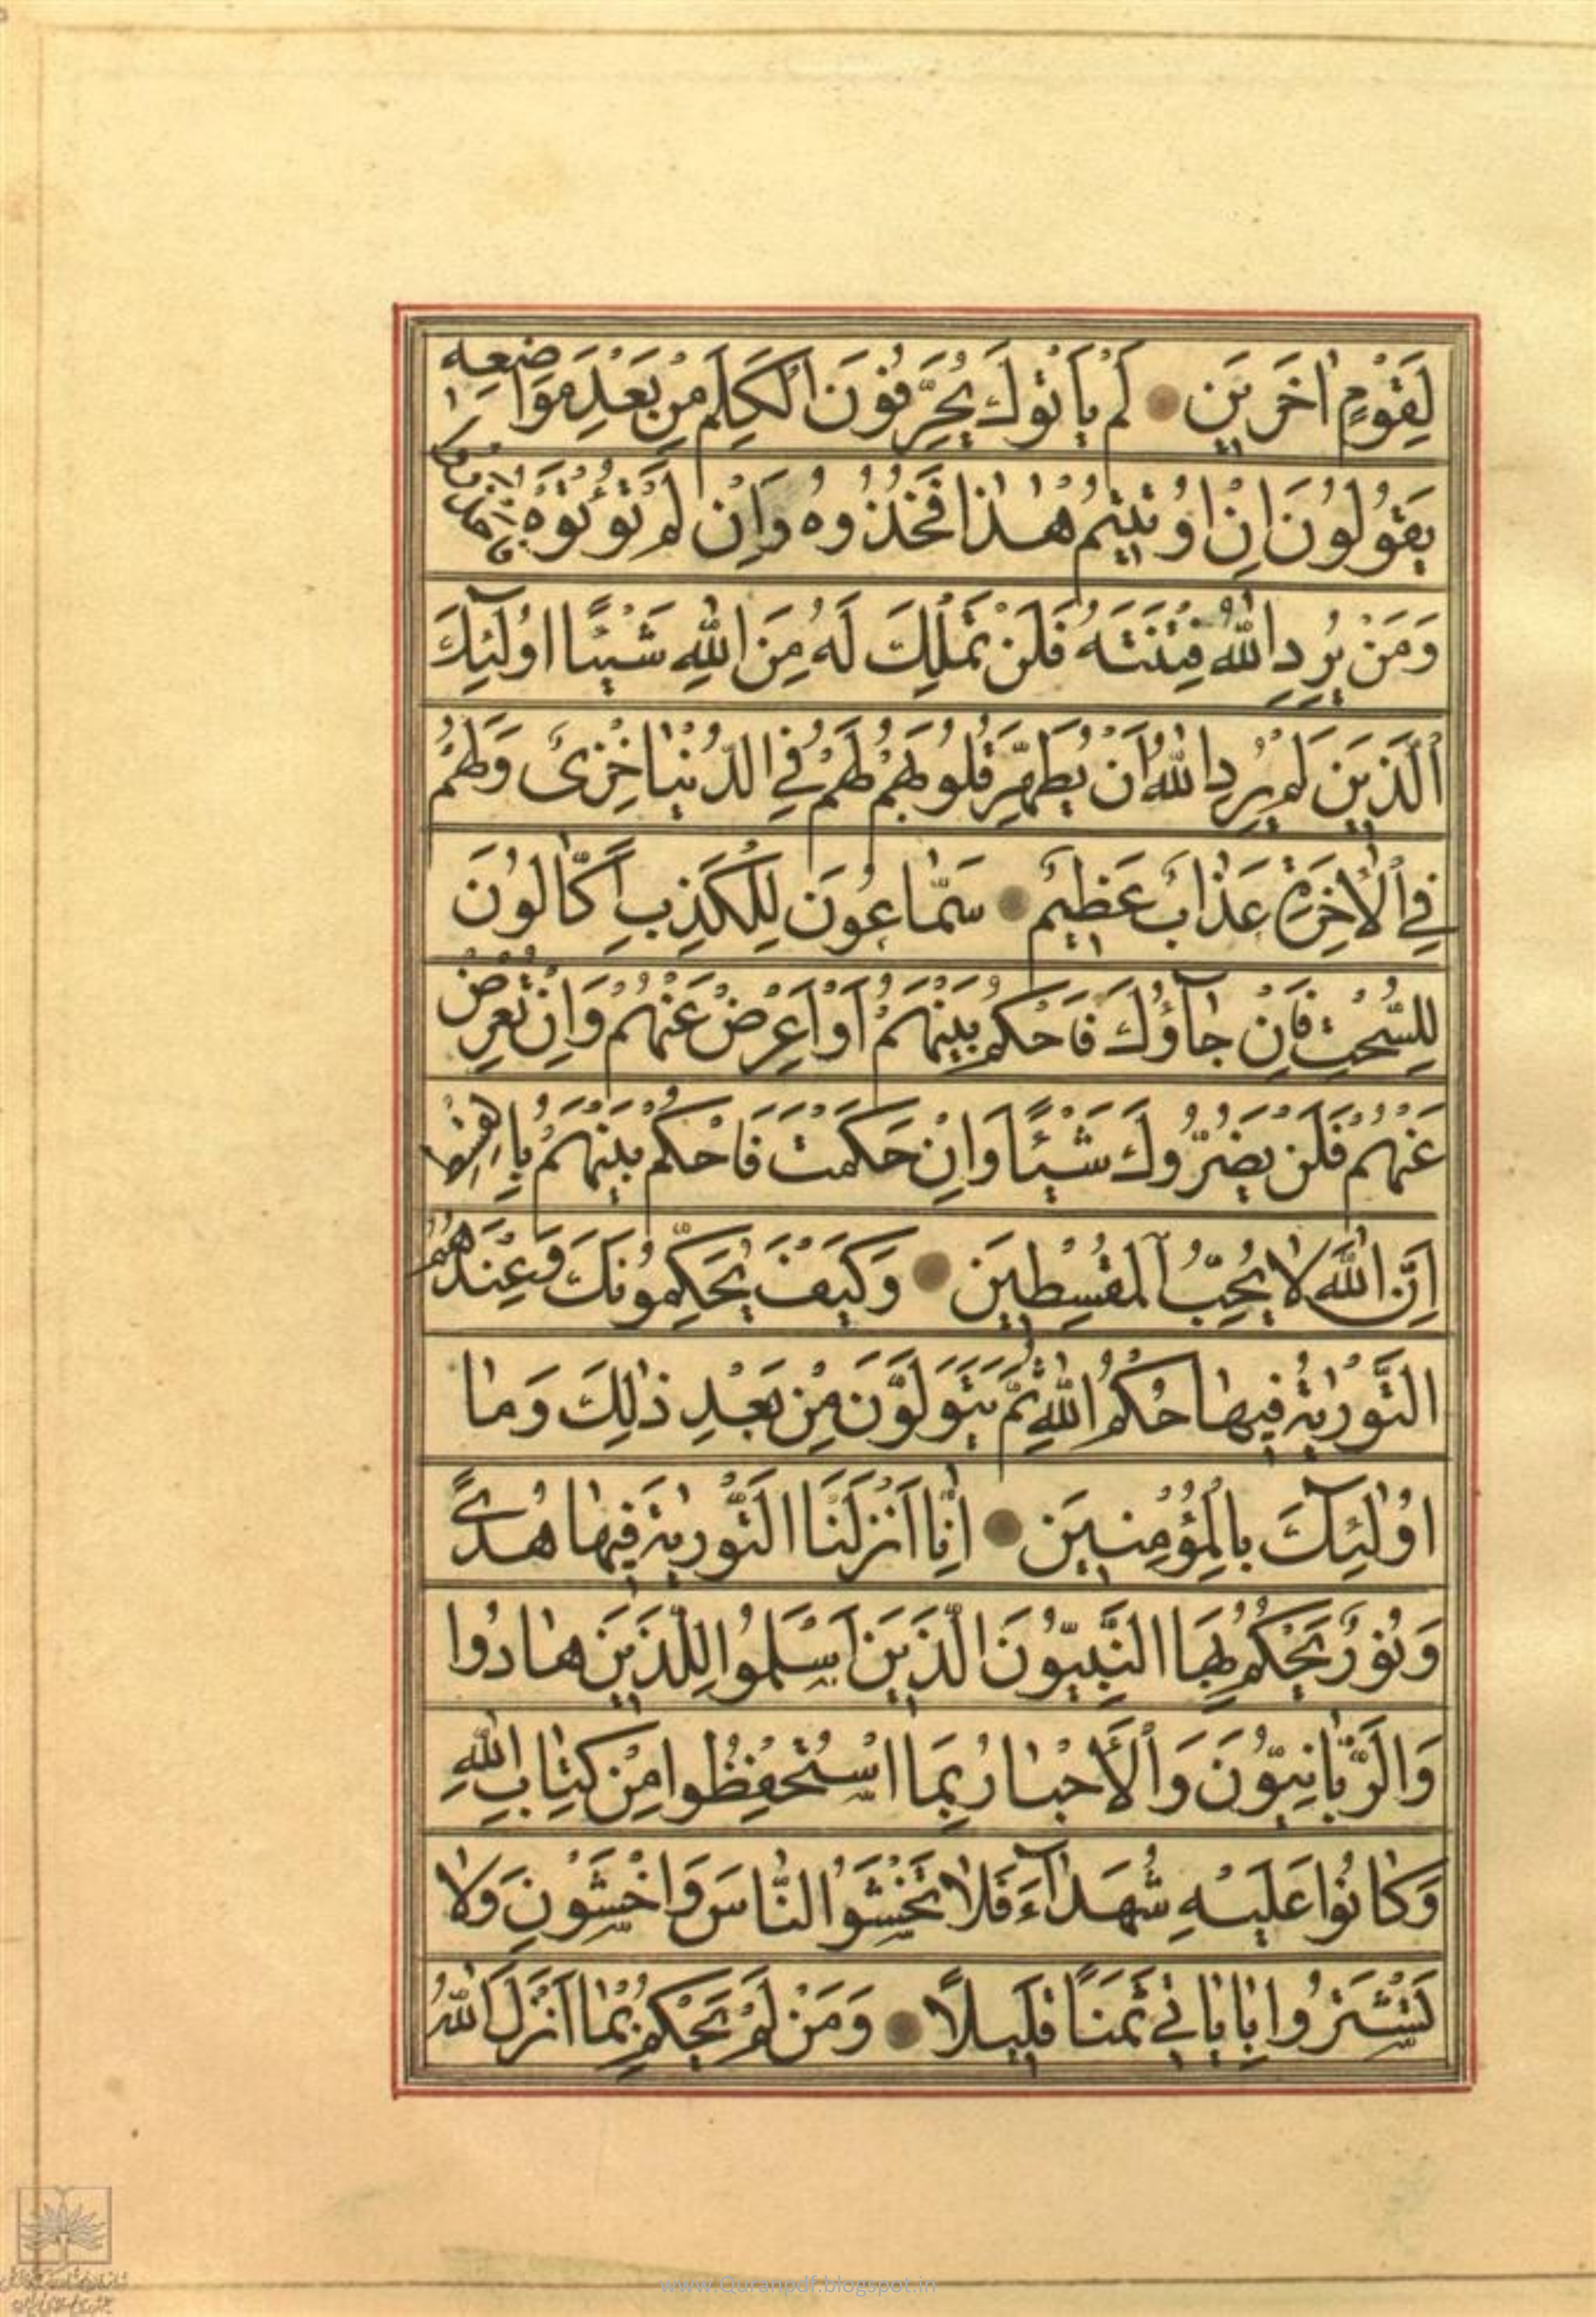 لِقَوْمٍ اٰخَرِيْنَ لَمْ يَاْتُوْكَ يُحَرِّفُوْنَ الْكَلِمَ مِنْ بَعْدِ مَوَاضِعِهٖ
يَقُوْلُوْنَ اِنْ اُوْتِيْتُمْ هٰذَا فَخُذُوْهُ وَاِنْ لَمْ تُؤْتَوْهُ فَاحْذَرُوْا
وَمَنْ يُرِدِ اللّٰهُ فِتْنَتَهُ فَلَنْ تَمْلِكَ لَهُ مِنَ اللّٰهِ شَيْئًا اُولٰٓئِكَ
الَّذِيْنَ لَمْ يُرِدِ اللّٰهُ اَنْ يُطَهِّرَ قُلُوْبَهُمْ لَهُمْ فِي الدُّنْيَا خِزْىٌ وَلَهُمْ
فِي الْاٰخِرَةِ عَذَابٌ عَظِيْمٌ سَمّٰاعُوْنَ لِلْكَذِبِ اَكّٰالُوْنَ
لِلسُّحْتِ فَاِنْ جٰٓاؤُكَ فَاحْكُمْ بَيْنَهُمْ اَوْ اَعْرِضْ عَنْهُمْ وَاِنْ تُعْرِضْ
عَنْهُمْ فَلَنْ يَضُرُّوْكَ شَيْئًا وَاِنْ حَكَمْتَ فَاحْكُمْ بَيْنَهُمْ بِالْقِسْطِ
اِنَّ اللّٰهَ لٰا يُحِبُّ الْمُقْسِطِيْنَ وَكَيْفَ يُحَكِّمُوْنَكَ وَعِنْدَهُمُ
التَّوْرٰيةُ فِيْهٰا حُكْمُ اللّٰهِ ثُمَّ يَتَوَلَّوْنَ مِنْ بَعْدِ ذٰلِكَ وَمٰا
اُولٰٓئِكَ بِالْمُؤْمِنِيْنَ اِنّٰا اَنْزَلْنَا التَّوْرٰيةَ فِيْهٰا هُدًى
وَنُوْرٌ يَحْكُمُ بِهَا النَّبِيُّوْنَ الَّذِيْنَ اَسْلَمُوْا لِلَّذِيْنَ هٰادُوْا
وَالرَّبّٰانِيُّوْنَ وَالْاَحْبٰارُ بِمَا اسْتُحْفِظُوْا مِنْ كِتٰابِ اللّٰهِ
وَكٰانُوْا عَلَيْهِ شُهَدٰٓاءَ فَلٰا تَخْشَوُا النّٰاسَ وَاخْشَوْنِ وَلٰا
تَشْتَرُوْا بِاٰيٰاتِيْ ثَمَنًا قَلِيْلًا وَمَنْ لَمْ يَحْكُمْ بِمٰا اَنْزَلَ اللّٰهُ
www.Quranpdf.blogspot.in